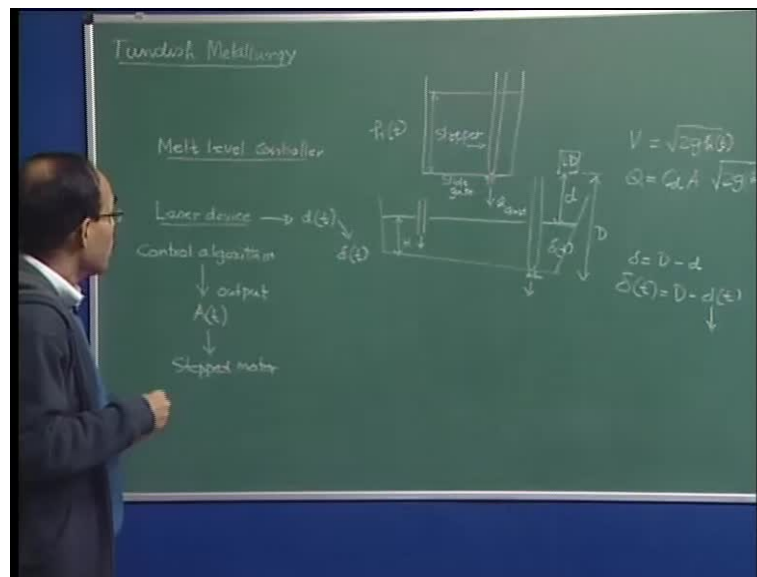 Tundish Metallurgy
Melt level controller
Laser device → d(t)
δ(t)
Control algorithm
↓ output
A(t)
↓
Stepped motor
h(t)
stopper
slide
gate
H
LD
d
δ(t)
D
V = √2gh(t)
Q = Cd A √2gh
δ = D - d
δ(t) = D - d(t)